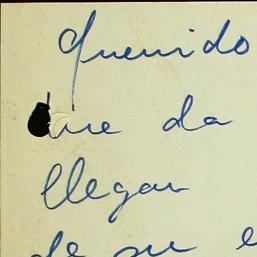 Querido
que da
llegan
de su e